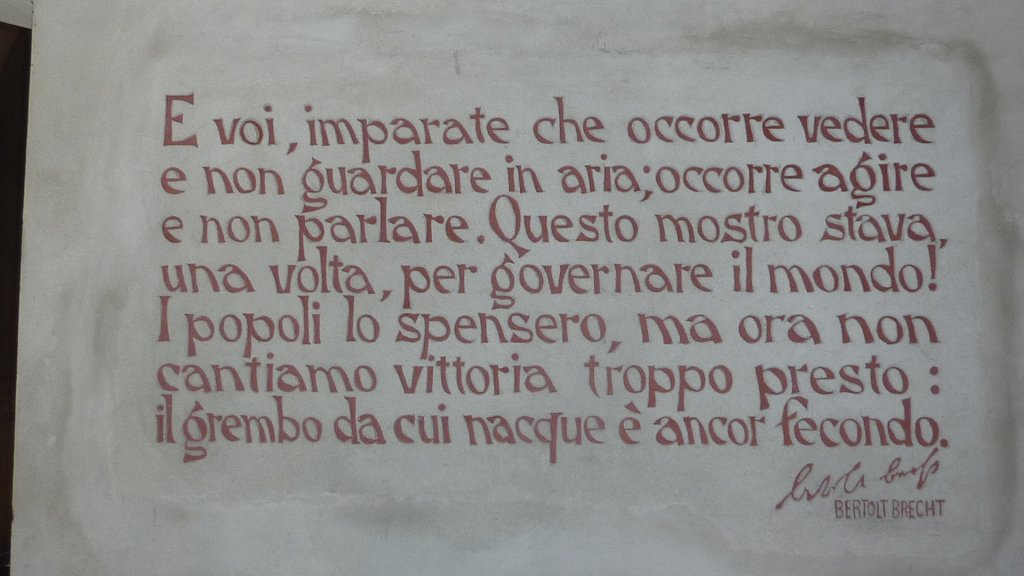 E voi, imparate che occorre vedere
e non guardare in aria; occorre agire
e non parlare. Questo mostro stava,
una volta, per governare il mondo!
I popoli lo spensero, ma ora non
cantiamo vittoria troppo presto :
il grembo da cui nacque è ancor fecondo.
BERTOLT BRECHT